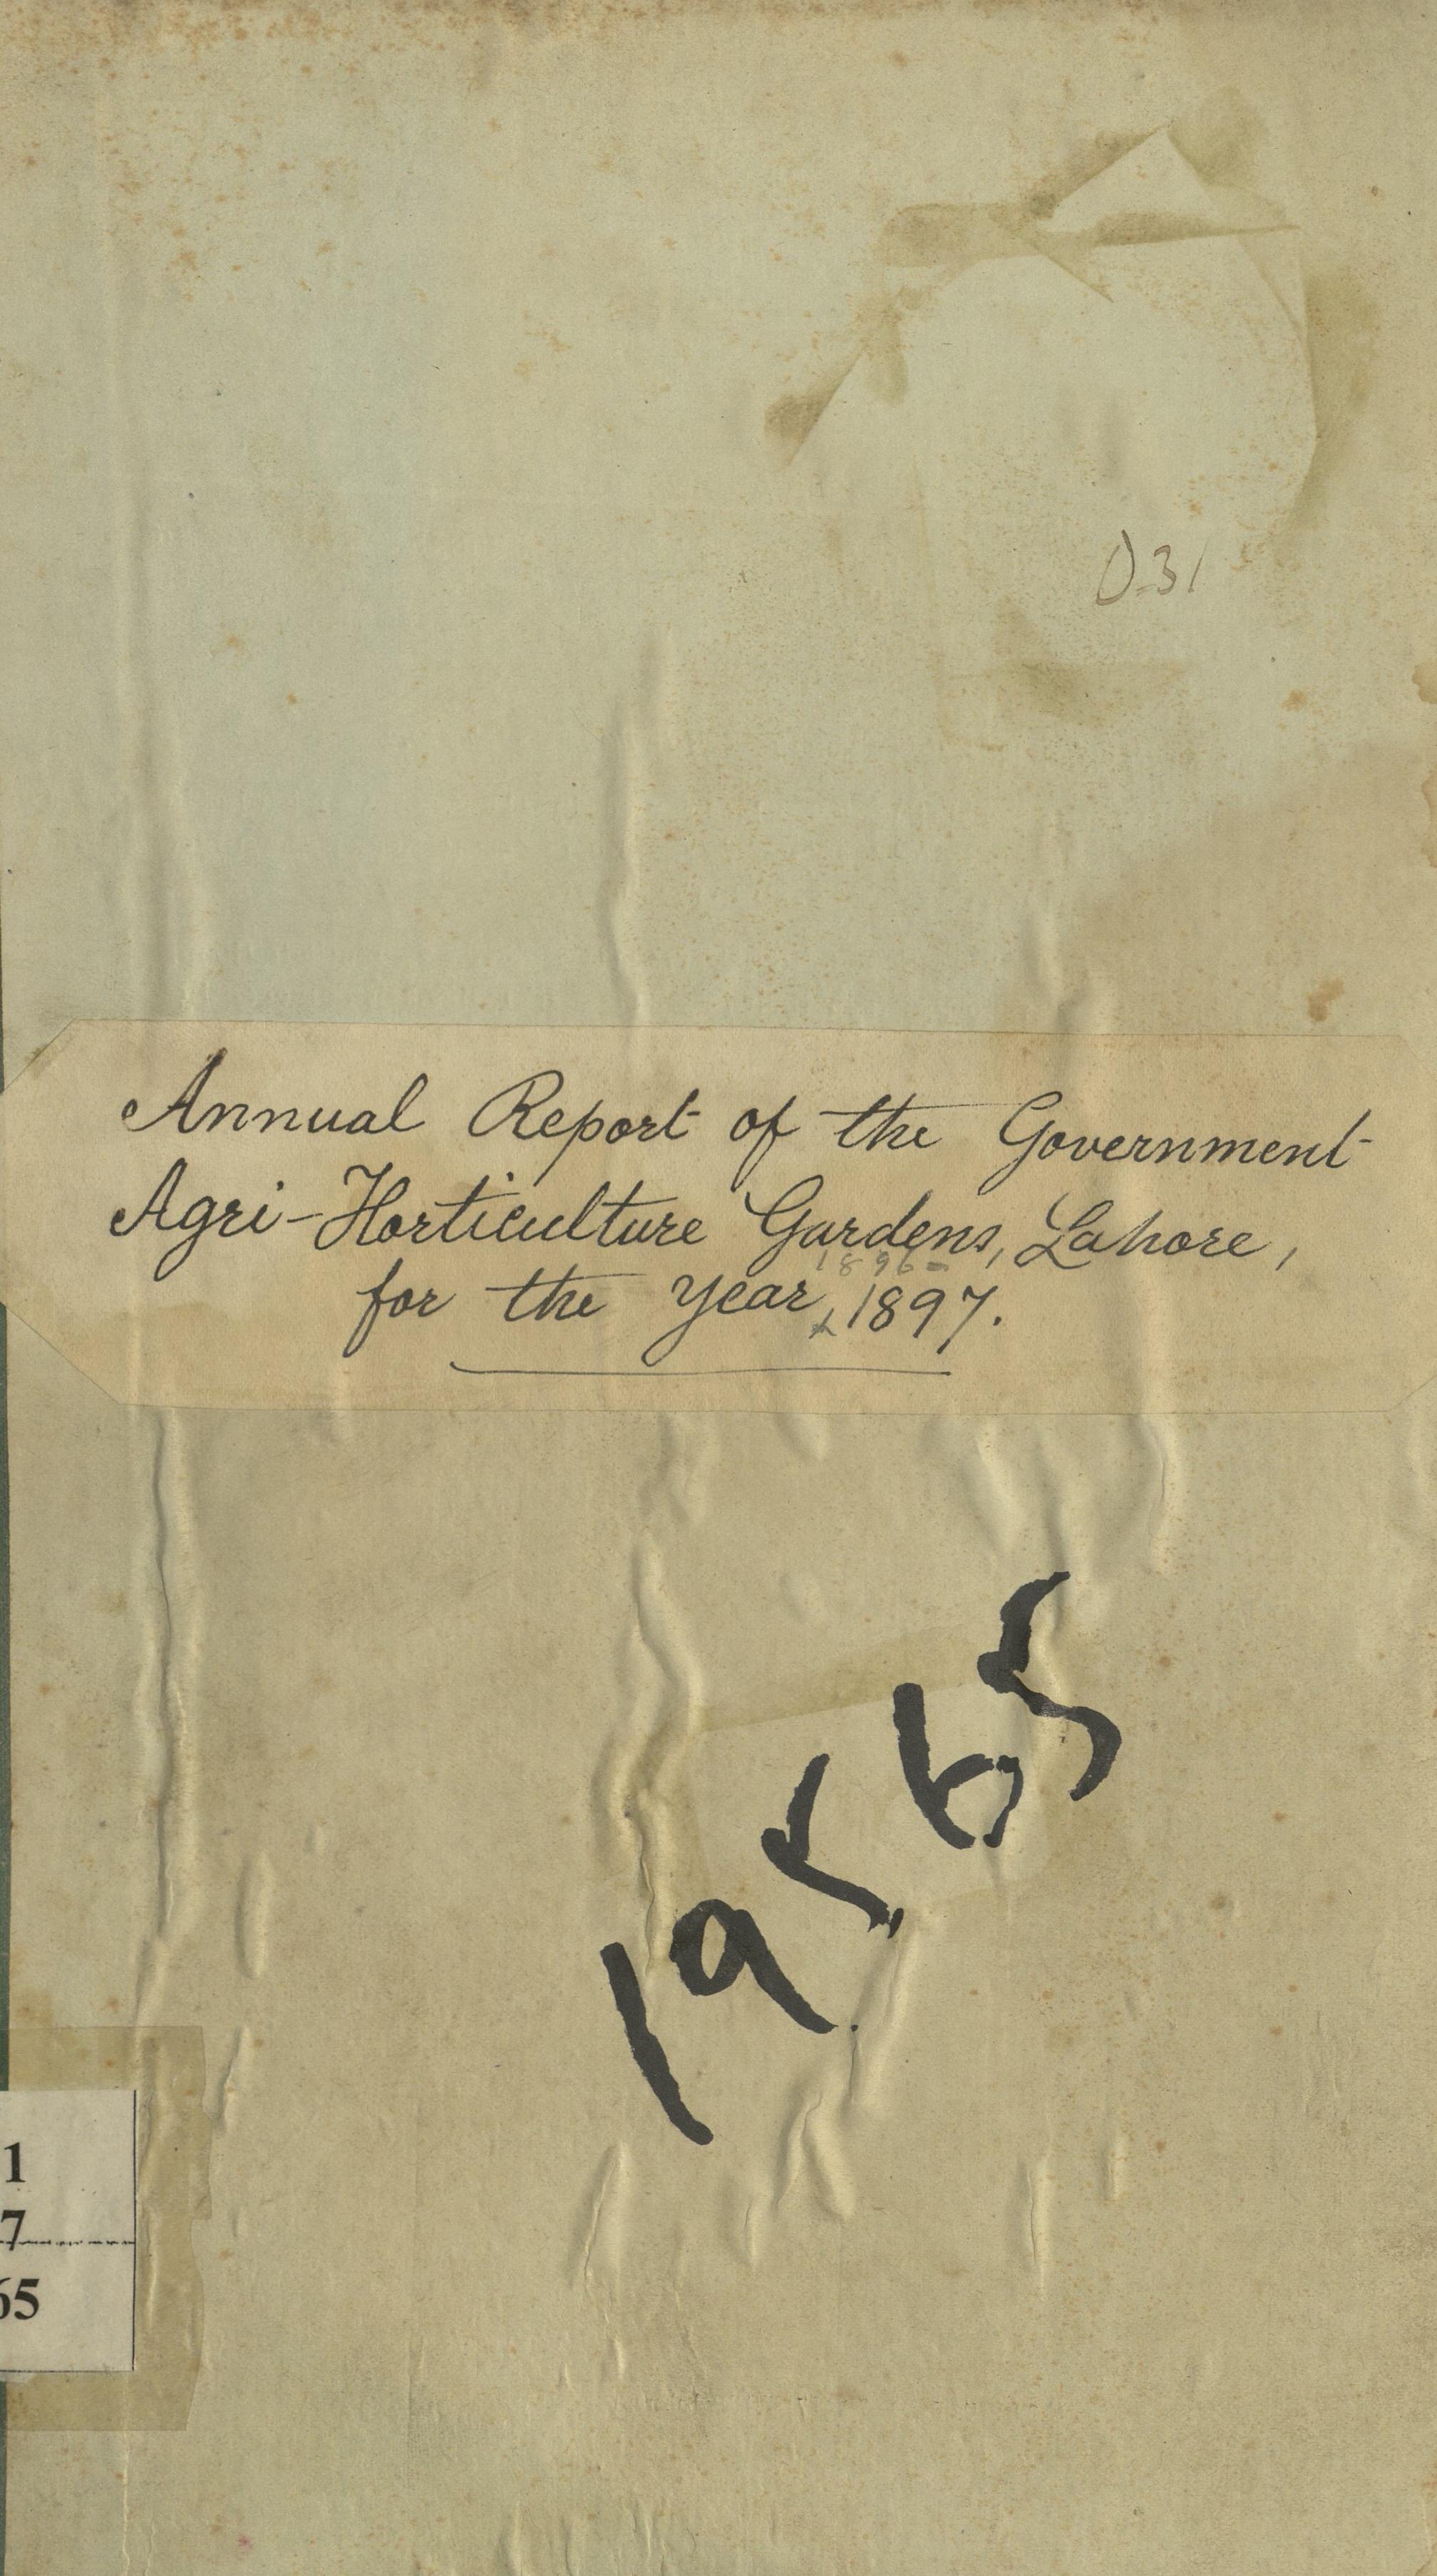 D.31
Annual Report of the Government
Agri-Horticulture Gardens, Lahore,
1896-
for the year 1897.
19565
1
7
65